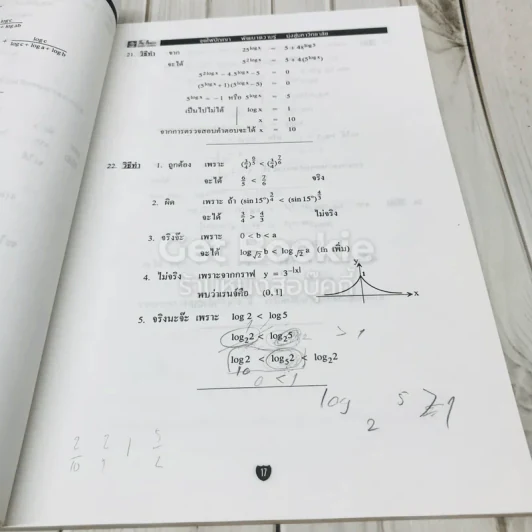 log c
log c + log a + log b
21. วิธีทำ จาก 25^log x = 5 + 4x^log 5
จะได้ 5^2log x = 5 + 4(5^log x)
5^2log x − 4.5^log x − 5 = 0
(5^log x + 1)(5^log x − 5) = 0
5^log x = −1 หรือ 5^log x = 5
เป็นไปไม่ได้ log x = 1
x = 10
จากการตรวจสอบคำตอบจะได้ x = 10
22. วิธีทำ 1. ถูกต้อง เพราะ
จะได้ 6/5 < 7/6 จริง
2. ผิด เพราะ ถ้า (sin 15°)^3/4 < (sin 15°)^4/3
จะได้ 3/4 > 4/3 ไม่จริง
3. จริงจ๊ะ เพราะ 0 < b < a
จะได้ log√2 b < log√2 a (fn เพิ่ม)
Get Bookie
ร้านหนังสือบุ๊คกี้
4. ไม่จริง เพราะจากกราฟ y = 3^−|x|
พบว่าเรนจ์คือ (0, 1]
y
1
x
5. จริงนะจ๊ะ เพราะ log 2 < log 5
log₂2 < log₂5 > 1
log 2 < log₅2 < log₂2
10
0 < 1
log₂ 5 > 1
2/10 2 1 5
17